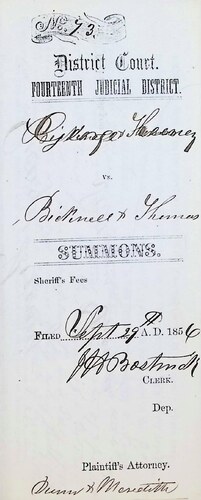 No. 73.
District Court.
FOURTEENTH JUDICIAL DISTRICT.
vs.
Bicknell & Thomas
SUMMONS.
Sheriff's Fees
FILED Sept 29th A. D. 1856
Bostwick
CLERK.
Dep.
Plaintiff's Attorney.
Dunn & Meredith